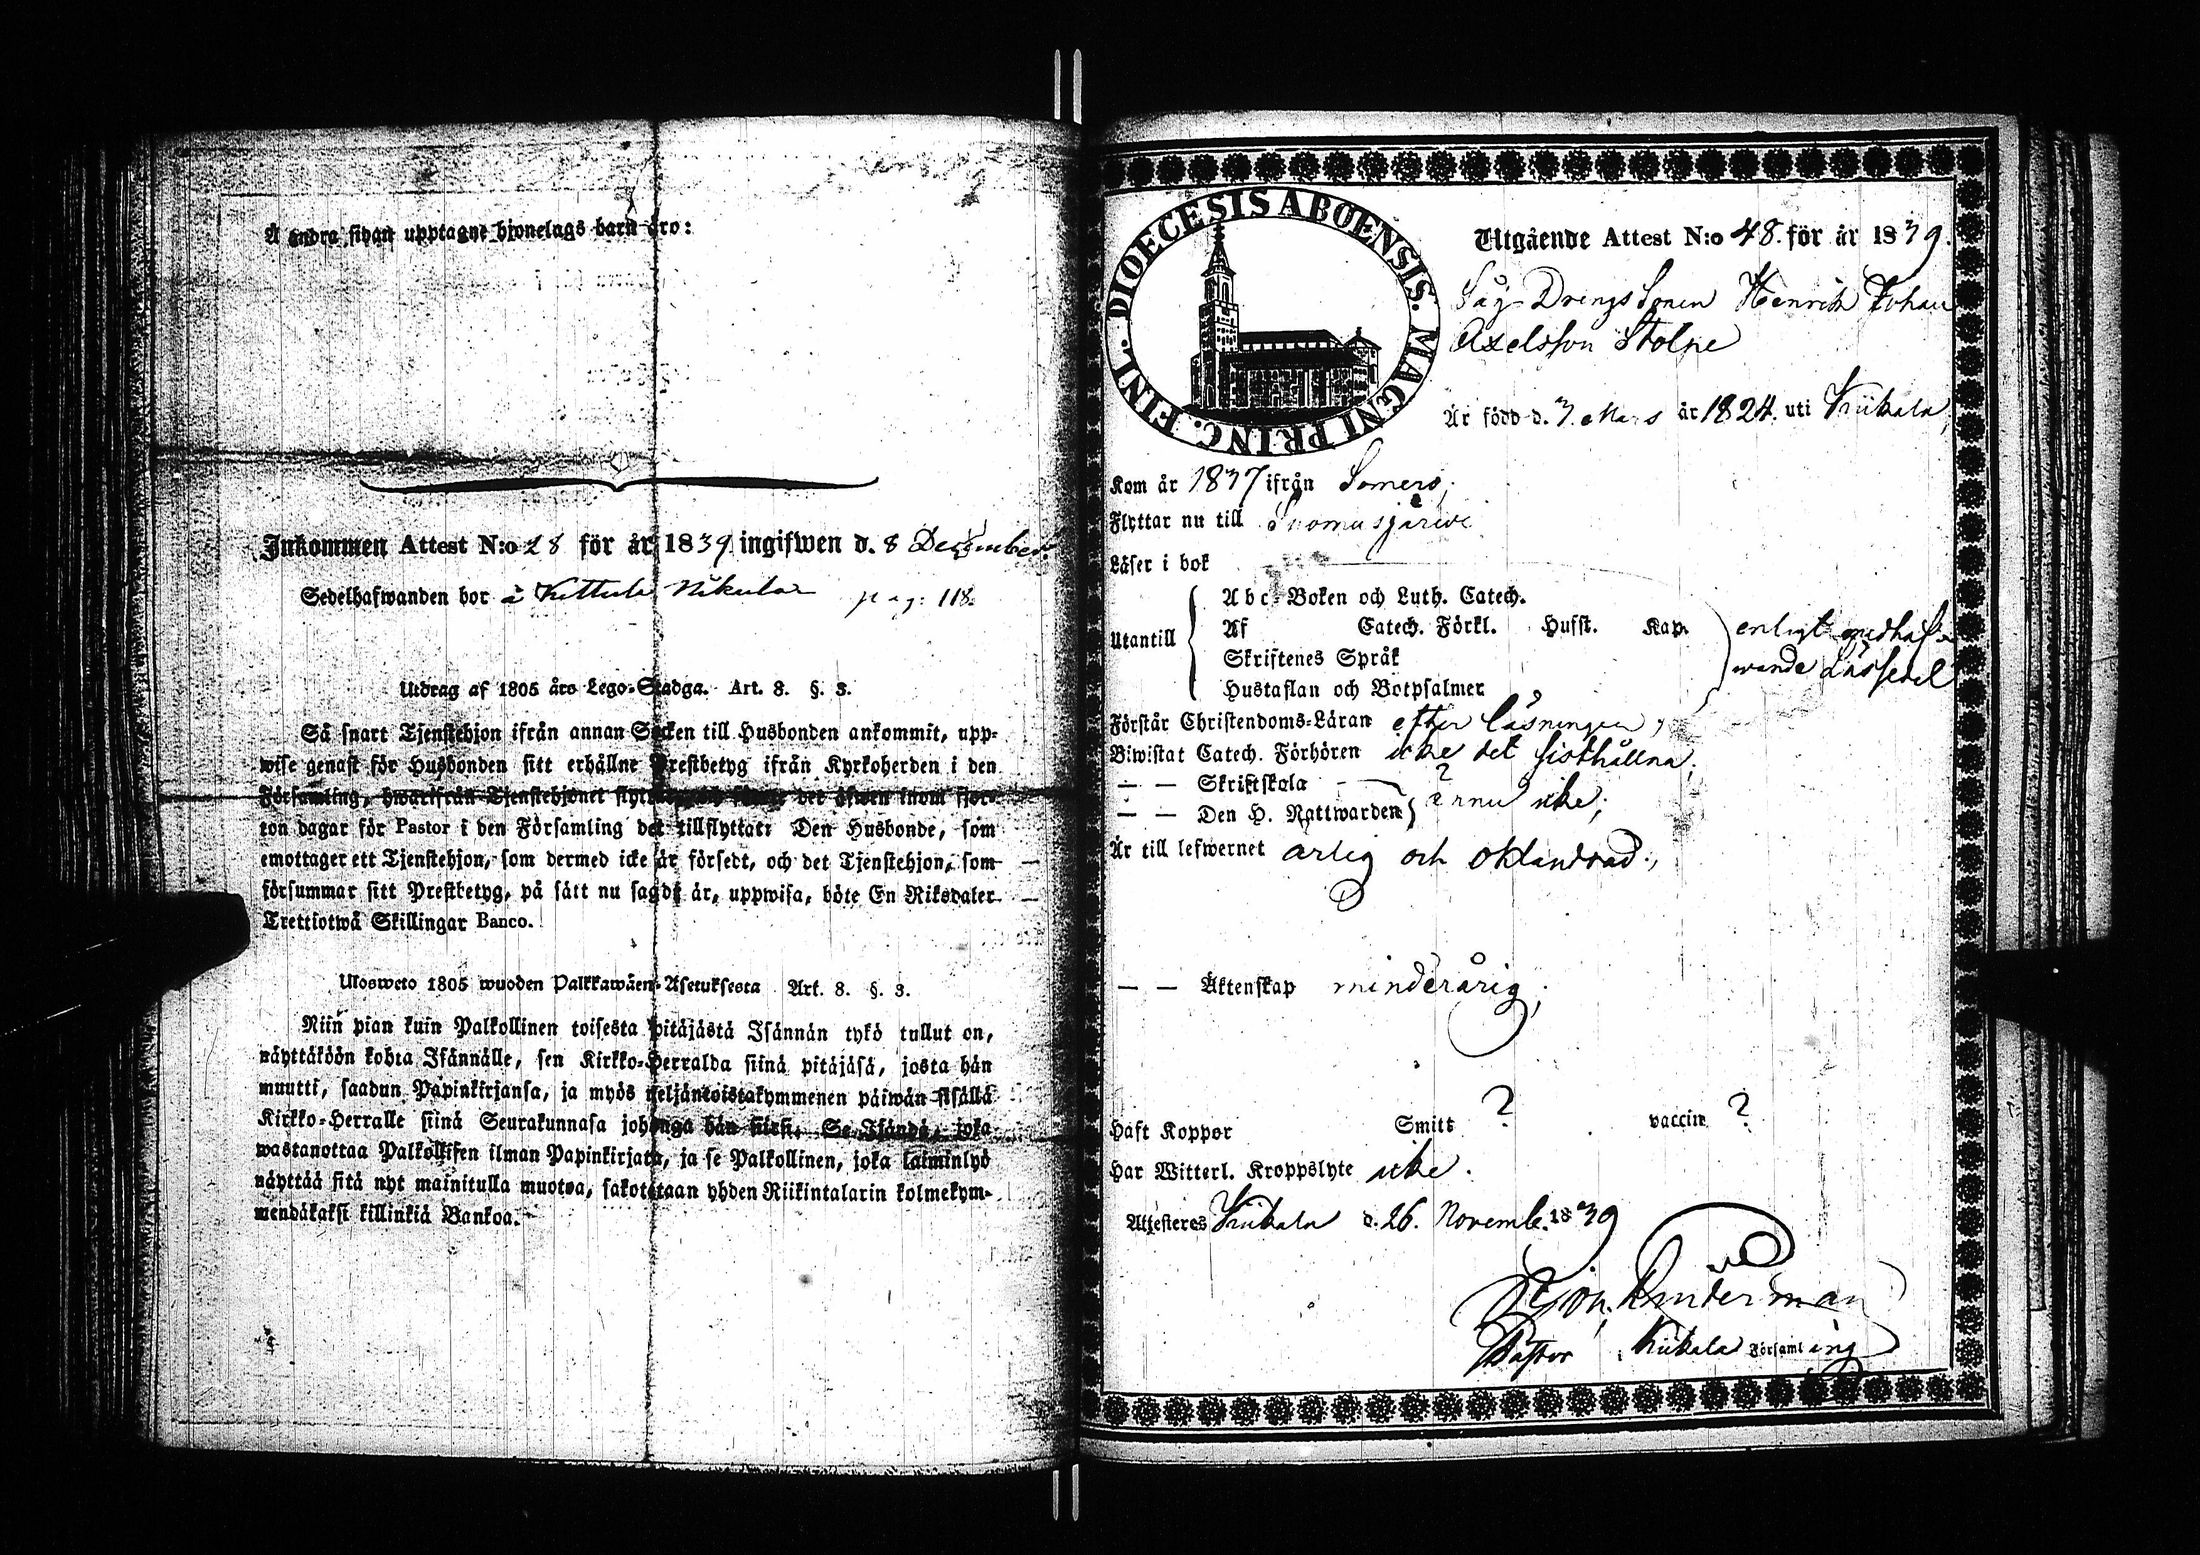 Å andra sidan upptagne hjonelags barn äro:
Inkommen Attest N:o 28 för år 1839 ingifwen d. 8 December.
Sedelhafwanden bor å Kettula Nikula pag: 118.
Utdrag af 1805 års Lego-Stadga. Art. 8. §. 3.
Så snart Tjenstehjon ifrån annan Socken till Husbonden ankommit, upp-
wise genast för Husbonden sitt erhållne Prestbetyg ifrån Kyrkoherden i den
Församling, hwarifrån Tjenstehjonet flyttat, och det äfwen inom fjor-
ton dagar för Pastor i den Församling det tillflyttat: Den Husbonde, som
emottager ett Tjenstehjon, som dermed icke är försedt, och det Tjenstehjon, som
försummar sitt Prestbetyg, på sätt nu sagdt är, uppwisa, böte En Riksdaler
Trettiotwå Skillingar Banco.
Ulosweto 1805 wuoden Palkkawäen-Asetuksesta Art. 8. §. 3.
Niin pian kuin Palkollinen toisesta pitäjästä Isännän tykö tullut on,
näyttäköön kohta Isännälle, sen Kirkko-Herralda siinä pitäjäsä, josta hän
muutti, saadun Papinkirjansa, ja myös neljäntoistakymmenen päiwän sisällä
Kirkko-Herralle siinä Seurakunnasa johonga hän siirsi. Se Isändä, joka
wastanottaa Palkollisen ilman Papinkirjata, ja se Palkollinen, joka laiminlyö
näyttää sitä nyt mainitulla muotoa, sakotetaan yhden Riikintalarin kolmekym-
mendäkaksi killinkiä Bankoa.
DIOECESIS ABOENSIS. MAGNI PRINC. FINL.
Utgående Attest N:o 48. för år 1839.
Såg-DrengsSonen Henrik Johan
Axelsson Stolpe
Är född d. 7. Mars år 1824. uti Kiikala,
Kom år 1837 ifrån Somero;
Flyttar nu till Suomusjärwi
Läser i bok
Utantill
Abc-Boken och Luth. Catech.
Af Catech. Förkl. Hufst. Kap.
Skriftenes Språk
Hustaflan och Botpsalmer
enligt medhaf-
wande Läsesedel
Förstår Christendoms-Läran efter läsningen,
Biwistat Catech. Förhören icke det sisthållna;
— — Skriftskola
— — Den H. Nattwarden ännu icke;
Är till lefwernet ärlig och oklandrad;
— — Äktenskap minderårig;
Haft Koppor Smitt ? vaccin ?
Har Witterl. Kroppslyte icke.
Attesteres Kiikala d. 26. Novemb. 1839
Pastor i Kiikala Församling